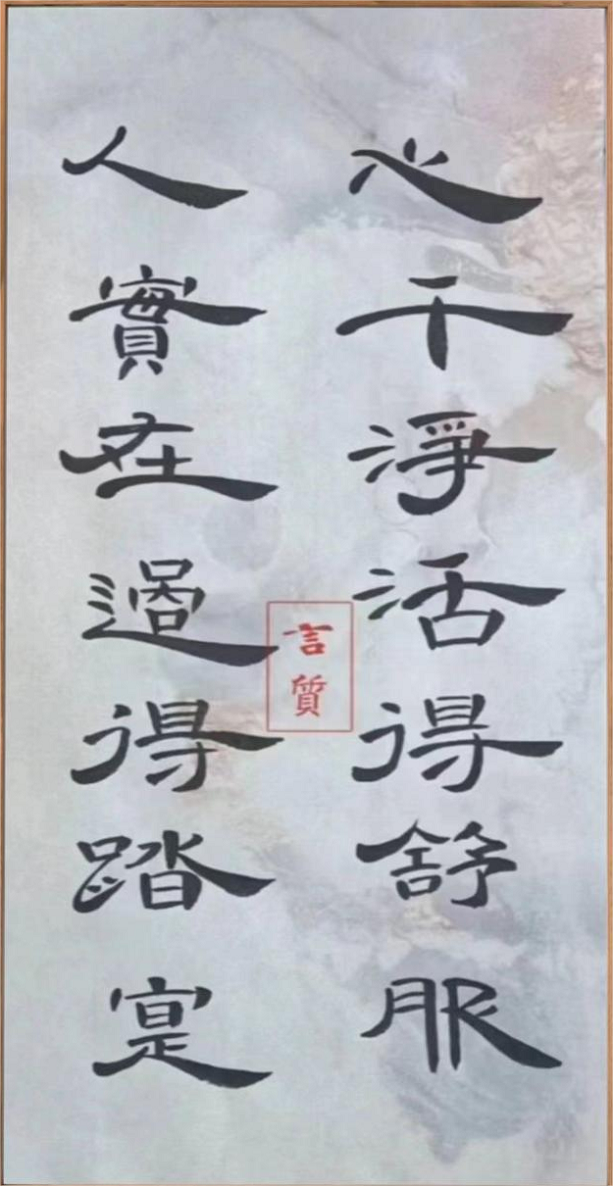 心干淨活得舒服
人實在過得踏寔
言質